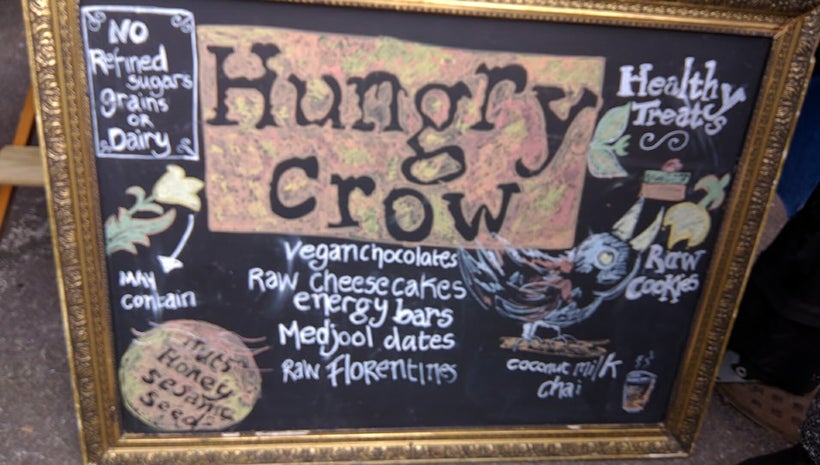 NO
Refined
sugars
grains
OR
Dairy
Hungry
Crow
Healthy
Treats
MAY
contain
Nuts
Honey
Sesame
Seeds
Vegan chocolates
Raw Cheesecakes
energy bars
Medjool dates
Raw Florentines
Raw
Cookies
coconut milk
Chai